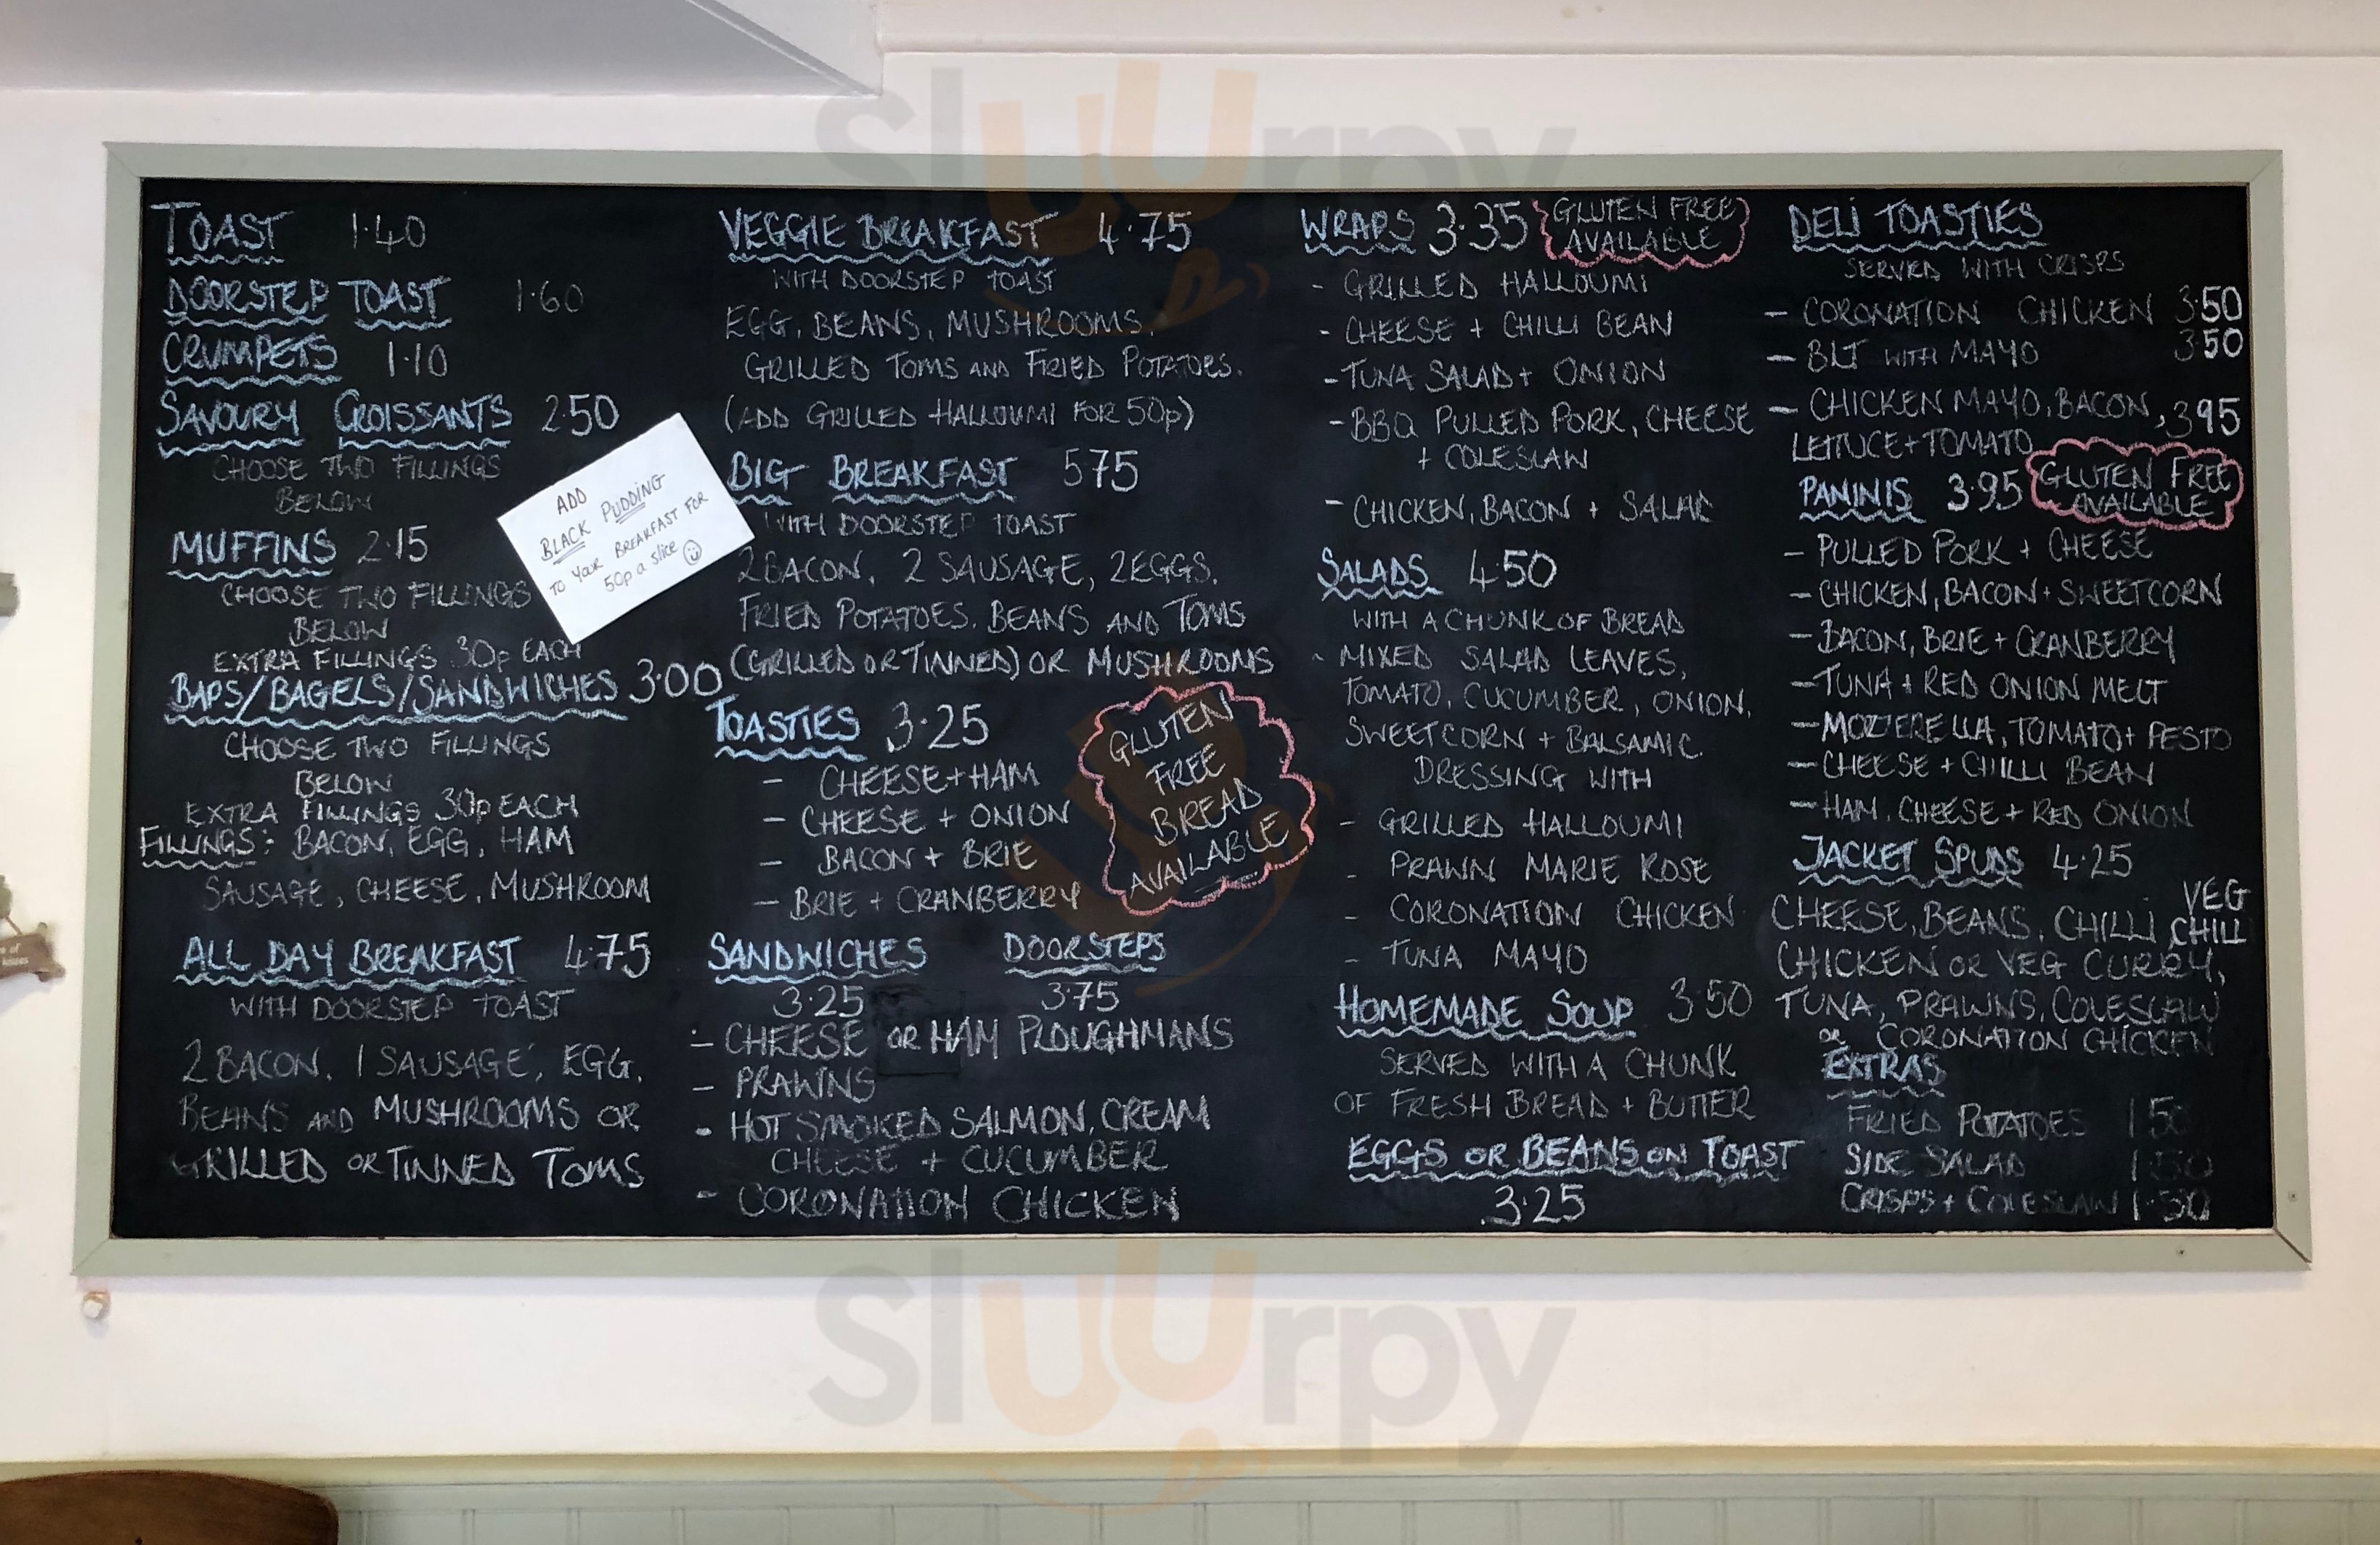 Sluurpy
TOAST 1.40
DOORSTEP TOAST 1.60
CRUMPETS 1.10
SAVOURY CROISSANTS 2.50
CHOOSE TWO FILLINGS
BELOW
MUFFINS 2.15
CHOOSE TWO FILLINGS
BELOW
EXTRA FILLINGS 30p EACH
BAPS/BAGELS/SANDWICHES 3.00
CHOOSE TWO FILLINGS
BELOW
EXTRA FILLINGS 30p EACH
FILLINGS: BACON, EGG, HAM
SAUSAGE, CHEESE, MUSHROOM
ALL DAY BREAKFAST 4.75
WITH DOORSTEP TOAST
2 BACON, 1 SAUSAGE, EGG,
BEANS AND MUSHROOMS OR
GRILLED OR TINNED TOMS
ADD
BLACK PUDDING
TO YOUR BREAKFAST FOR
50p a slice
VEGGIE BREAKFAST 4.75
WITH DOORSTEP TOAST
EGG, BEANS, MUSHROOMS,
GRILLED TOMS AND FRIED POTATOES.
(ADD GRILLED HALLOUMI FOR 50p)
BIG BREAKFAST 575
WITH DOORSTEP TOAST
2 BACON, 2 SAUSAGE, 2 EGGS,
FRIED POTATOES, BEANS AND TOMS
(GRILLED OR TINNED) OR MUSHROOMS
TOASTIES 3.25
- CHEESE + HAM
- CHEESE + ONION
- BACON + BRIE
- BRIE + CRANBERRY
GLUTEN
FREE
BREAD
AVAILABLE
SANDWICHES DOORSTEPS
3.25 3.75
- CHEESE OR HAM PLOUGHMANS
- PRAWNS
- HOT SMOKED SALMON, CREAM
CHEESE + CUCUMBER
- CORONATION CHICKEN
WRAPS 3.35 GLUTEN FREE
AVAILABLE
- GRILLED HALLOUMI
- CHEESE + CHILLI BEAN
- TUNA SALAD + ONION
- BBQ PULLED PORK, CHEESE
+ COLESLAW
- CHICKEN, BACON + SALAD
SALADS 4.50
WITH A CHUNK OF BREAD
- MIXED SALAD LEAVES,
TOMATO, CUCUMBER, ONION,
SWEETCORN + BALSAMIC
DRESSING WITH
- GRILLED HALLOUMI
- PRAWN MARIE ROSE
- CORONATION CHICKEN
- TUNA MAYO
HOMEMADE SOUP 3.50
SERVED WITH A CHUNK
OF FRESH BREAD + BUTTER
EGGS OR BEANS ON TOAST
3.25
DELI TOASTIES
SERVED WITH CRISPS
- CORONATION CHICKEN 3.50
- BLT WITH MAYO 3.50
- CHICKEN MAYO, BACON, 3.95
LETTUCE + TOMATO
PANINIS 3.95 GLUTEN FREE
AVAILABLE
- PULLED PORK + CHEESE
- CHICKEN, BACON + SWEETCORN
- BACON, BRIE + CRANBERRY
- TUNA + RED ONION MELT
- MOZZERELLA, TOMATO + PESTO
- CHEESE + CHILLI BEAN
- HAM, CHEESE + RED ONION
JACKET SPUDS 4.25
CHEESE, BEANS, CHILLI, VEG CHILLI
CHICKEN OR VEG CURRY,
TUNA, PRAWNS, COLESLAW
OR CORONATION CHICKEN
EXTRAS
FRIED POTATOES 1.50
SIDE SALAD 1.50
CRISPS + COLESLAW 1.50
Sluurpy